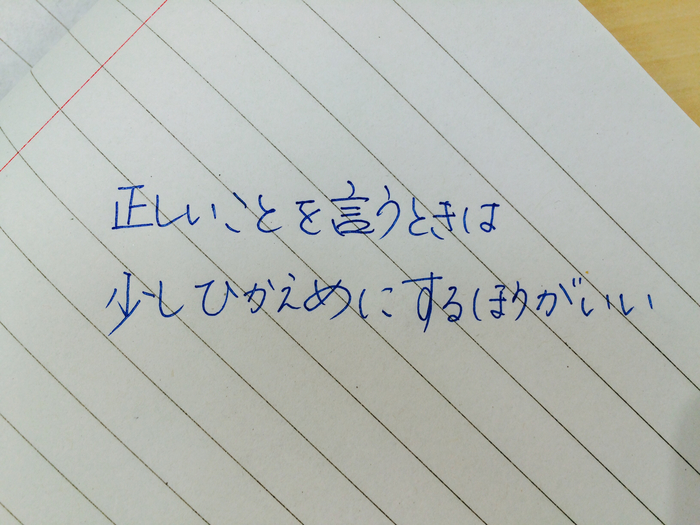 正しいことを言うときは
少しひかえめにするほうがいい